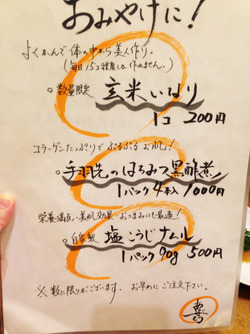 おみやけに！
よくかんで体の中から美人作り。
（毎日15コ程度しか作れません。）
。数量限定 玄米いなり
1コ 200円
コラーゲンたっぷりでぷるぷるお肌！
。手羽先のはちみつ黒酢煮
1パック4本入 1000円
栄養満点・美肌効果・おつまみにも最適！
。自家製 塩こうじナムル
1パック90g 500円
※数に限りがございます。お早めにご注文下さい。
喜